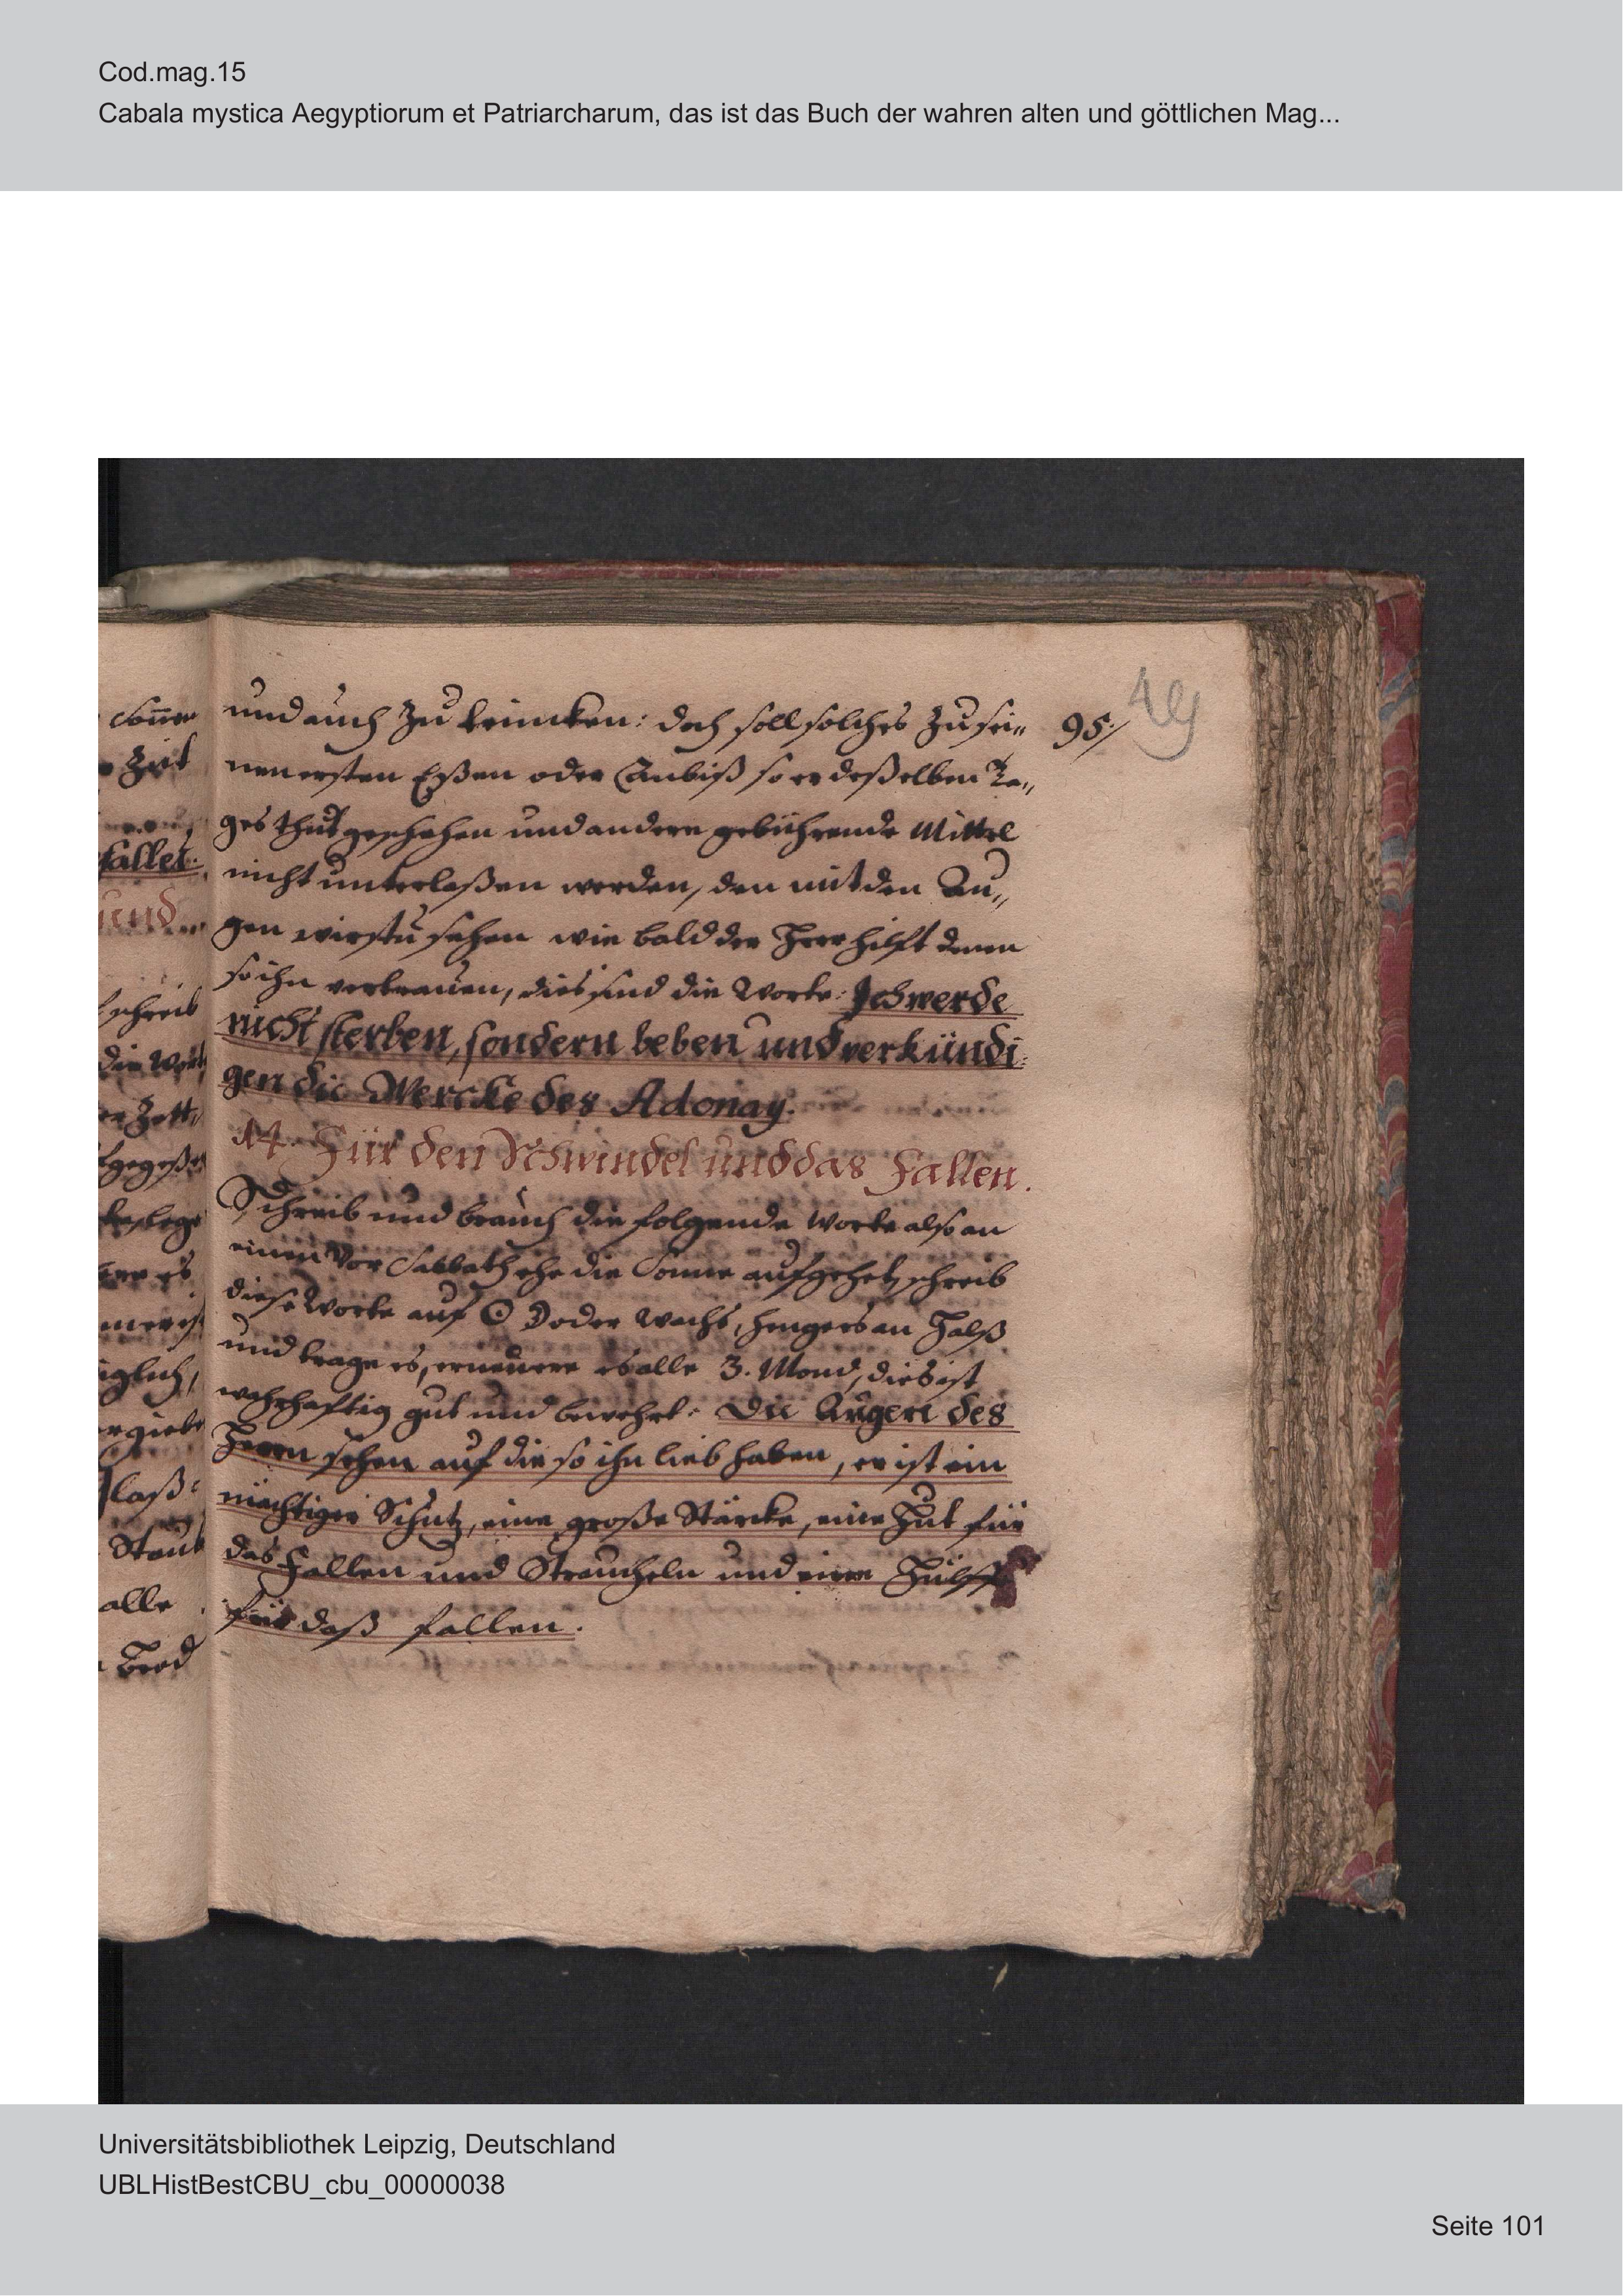 Cod.mag.15
Cabala mystica Aegyptiorum et Patriarcharum, das ist das Buch der wahren alten und göttlichen Mag...
49
95./
und auch zu trincken: doch soll solches zu sei„
nen ersten Eßen oder Anbiß so er deßelben Ta„
ges thut geschehen und andere gebührende Mittel
nicht unterlaßen werden, den mit den Au„
gen wirstu sehen wie bald der Herr hilft denen
so ihn vertrauen, dies sind die Worte: Ich werde
nicht sterben, sondern leben und verkündi:
gen die Wercke des Adonay.
14. Für den Schwindel und das Fallen.
Schreib und brauch die folgende Worte also an
einen Vor Sabbath ehe die Sonne aufgehet, schreib
diese Worte auf ☉ ☽ oder Wachs, hengers an Halß
und trage es, erneuere es alle 3. Mond, dies ist
wahrhaftig gut und bewehrt: Die Augen des
Herrn sehen auf die so ihn lieb haben, er ist ein
mächtiger Schutz, eine große Stärcke, eine Hut für
das Fallen und Straucheln und eine Hülff
für daß fallen.
Sonne
Zeit
fallet.
und
schreib
die Wort
Zett„
lege
es
iglich,
laß:
Staub
alle
Brod
Universitätsbibliothek Leipzig, Deutschland
UBLHistBestCBU_cbu_00000038
Seite 101